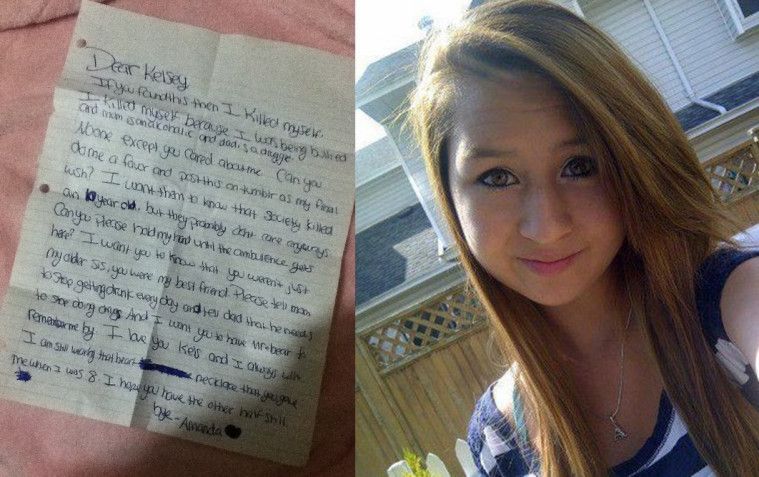 Dear Kelsey
If you found this then I killed myself.
I killed myself because I was being bullied
and mom is an alcoholic and dad is a druggie
Noone except you cared about me. Can you
do me a favor and post this on tumblr as my final
wish? I want them to know that society killed
an 10 year old. but they probably dont care anyways
Can you Please hold my hand until the ambulence gets
here? I want you to know that you weren't just
my older sis, you were my best friend. Please tell mom
to stop getting drunk every day and tell dad that he needs
to stop doing drugs. And I want you to have Mr. bear to
remember me by. I love you Kels and I always will
I am still wearing that heart necklace that you gave
me when I was 8. I hope you have the other half still.
bye - Amanda
A